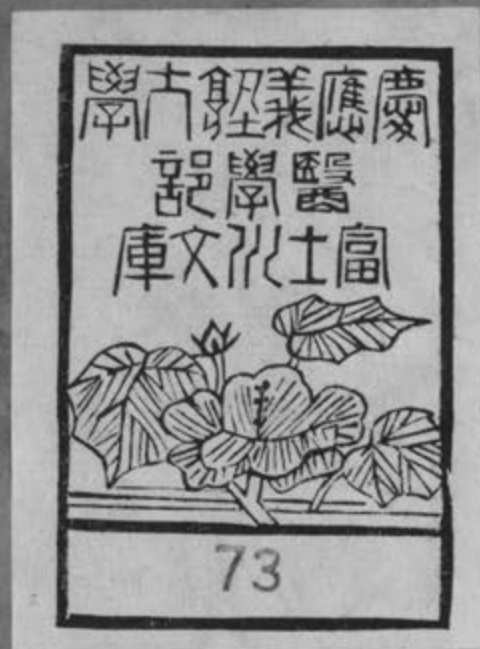 慶應義塾大學
醫學部
富士川文庫
73